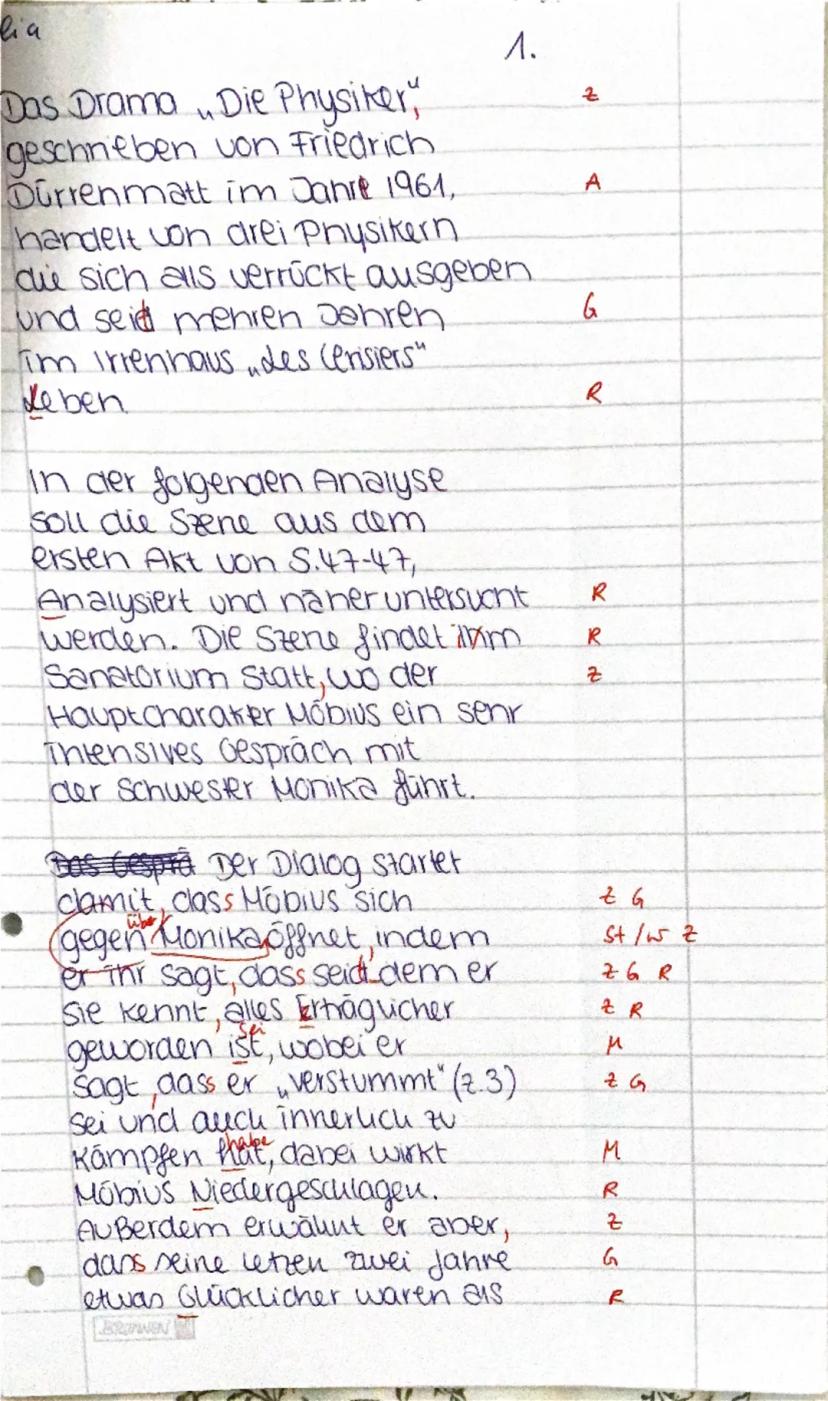 lia
1.
Das Drama „Die Physiker", Z
geschrieben von Friedrich
Dürrenmatt im Jahre 1961, A
handelt von drei Physikern
die sich als verrückt ausgeben
und seid mehren Jahren G
im Irrenhaus „des Cerisiers"
Leben R
In der folgenden Analyse
soll die Szene aus dem
ersten Akt von S.47-47,
Analysiert und näher untersucht R
werden. Die Szene findet im R
Sanatorium statt, wo der Z
Hauptcharakter Möbius ein sehr
intensives Gespräch mit
der Schwester Monika führt.
Das Gesprä Der Dialog startet
damit, dass Möbius sich Z G
gegen über Monika, öffnet, indem St/W Z
er ihr sagt, dass seid dem er Z G R
sie kennt, alles Erträglicher Z R
geworden ist sei, wobei er M
sagt, dass er „verstummt" (Z.3) Z G
sei und auch innerlich zu
Kämpfen hat habe, dabei wirkt M
Möbius Niedergeschlagen. R
Außerdem erwähnt er aber, Z
dass seine letzen zwei Jahre G
etwas Glücklicher waren als R
BRUNNEN